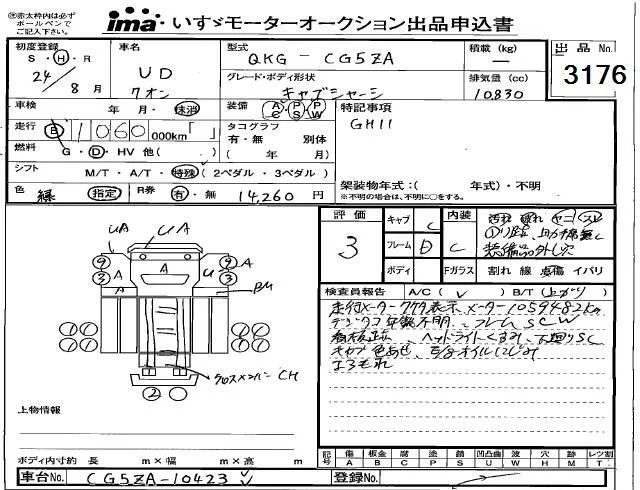 ㊟赤太枠内は必ず
ボールペンで
ご記入下さい。
ima いすゞモーターオークション出品申込書
初度登録 S・H・R 24年 8月
車名 UD クオン
型式 QKG－CG5ZA
グレード・ボディ形状 キャブシャーシ
積載 (kg) ー
排気量 (cc) 10,830
出品No. 3176
車検 年 月・抹消
装備 A/C P/S P/W
特記事項
GH11
走行 1060,000km「 」
タコグラフ 有・無 別体 ( 年 月)
燃料 G・D・HV 他( )
シフト M/T・A/T・特殊 (2ペダル・3ペダル)
架装物年式:( 年式)・不明
※不明の場合は、不明に○をする。
色 緑 指定 R券 有・無 14,260円
評価 3
キャブ C
フレーム D
ボディ
内装 C
Fガラス 割れ 線 点傷 イバリ
汚れ 破れ ヤニ スレ
装備品外し穴
検査員報告 A/C( レ ) B/T(上がり)
走行メーター ケタ表示 メーター1059482km
デジタコ年製不明、フレームSCW
ヘッドライトくすみ、下廻りSC
キャブ色あせ、
UA UA
9 A U 9 A
3 3
A A
BM
クロスメンバーCH
2
上物情報
ボディ内寸約 長 m×幅 m×高 m
記号 傷A 板金B 腐C 塗P 錆S 凹凸曲U 波W 穴H 跡M レツ割T
車台No. CG5ZA-10423
登録No.